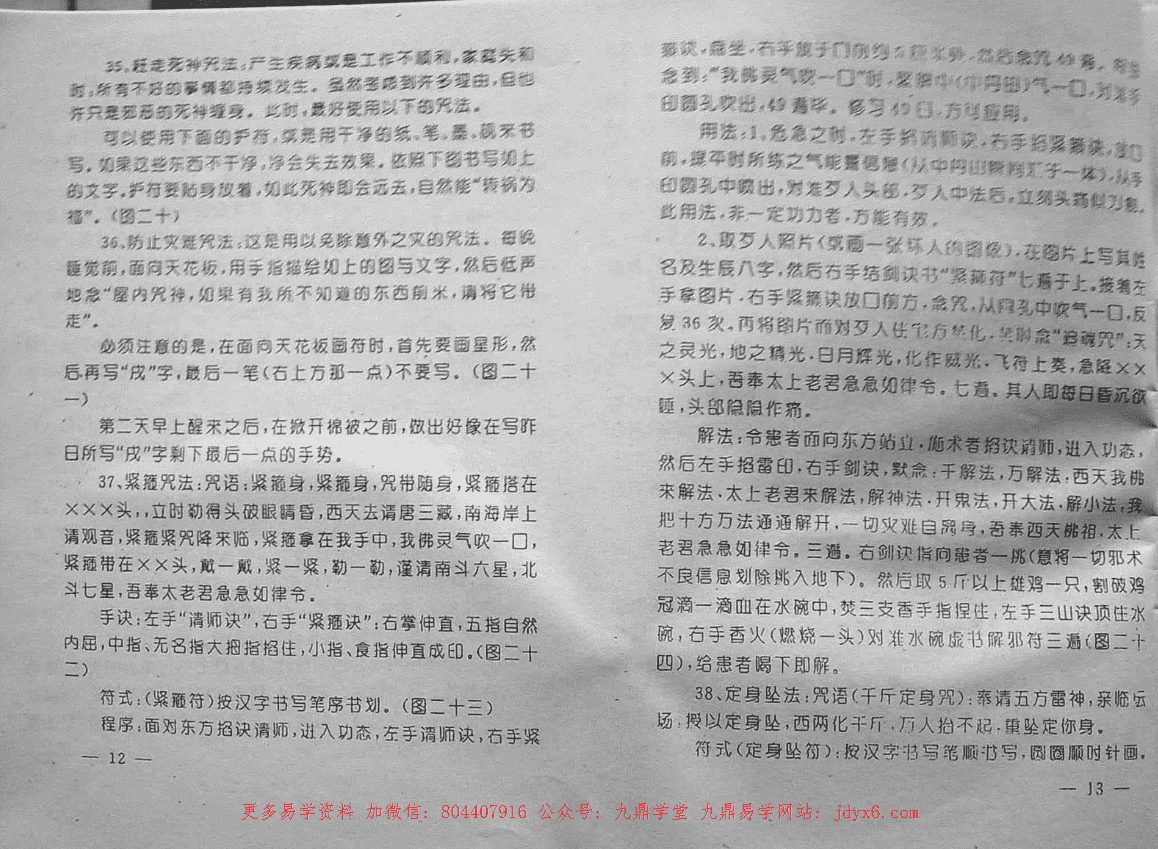 35、赶走死神咒法:产生疾病或是工作不顺利,家庭失和
时,所有不好的事情都持续发生。虽然考虑到许多理由,但也
许只是邪恶的死神缠身。此时,最好使用以下的咒法。
可以使用下面的护符,或是用干净的纸、笔、墨、砚来书
写。如果这些东西不干净,净会失去效果。依照下图书写如上
的文字。护符要贴身放着,如此死神即会远去,自然能“转祸为
福”。(图二十)
36、防止灾难咒法:这是用以免除意外之灾的咒法。每晚
睡觉前,面向天花板,用手指描绘如上的图与文字,然后低声
地念“屋内咒神,如果有我所不知道的东西前来,请将它带
走”。
必须注意的是,在面向天花板画符时,首先要画星形,然
后再写“戌”字,最后一笔(右上方那一点)不要写。(图二十
一)
第二天早上醒来之后,在掀开棉被之前,做出好像在写昨
日所写“戌”字剩下最后一点的手势。
37、紧箍咒法:咒语:紧箍身,紧箍身,咒带随身,紧箍搭在
×××头,,立时勒得头破眼睛昏,西天去请唐三藏,南海岸上
请观音,紧箍紧咒降来临,紧箍拿在我手中,我佛灵气吹一口,
紧箍带在××头,戴一戴,紧一紧,勒一勒,谨请南斗六星,北
斗七星,吾奉太老君急急如律令。
手诀:左手“请师诀”,右手“紧箍诀”:右掌伸直,五指自然
内屈,中指、无名指大拇指掐住,小指、食指伸直成印。(图二十
二)
符式:(紧箍符)按汉字书写笔序书划。(图二十三)
程序:面对东方掐诀请师,进入功态,左手请师诀,右手紧
— 12 —
箍诀,盘坐,右手放于口前约 然后念咒49遍。每当
念到:“我佛灵气吹一口”时,紧缩中(中丹田)气一口,对准手
印圆孔吹出,49遍毕。修习49日,方可应用。
用法:1、危急之时,左手掐请师诀,右手掐紧箍诀,放口
前,提平时所练之气能量信息(从中丹田瞬间汇于一体),从手
印圆孔中喷出,对准歹人头部,歹人中法后,立刻头痛似刀割。
此用法,非一定功力者,方能有效。
2、取歹人照片(或画一张坏人的图像),在图片上写其姓
名及生辰八字,然后右手结剑诀书“紧箍符”七遍于上。接着左
手拿图片,右手紧箍诀放口前方,念咒,从圆孔中吹气一口,反
复36次。再将图片面对歹人住宅方焚化,焚时念“追魂咒”:天
之灵光,地之精光,日月辉光,化作威光,飞符上奏,急降××
×头上,吾奉太上老君急急如律令。七遍。其人即每日昏沉欲
睡,头部隐隐作痛。
解法:令患者面向东方站立,施术者掐诀请师,进入功态,
然后左手掐雷印,右手剑诀,默念:千解法,万解法,西天我佛
来解法,太上老君来解法,解神法,开鬼法,开大法,解小法,我
把十方万法通通解开,一切灾难自离身,吾奉西天佛祖,太上
老君急急如律令。三遍。右剑诀指向患者一挑(意将一切邪术
不良信息划除挑入地下)。然后取5斤以上雄鸡一只,割破鸡
冠滴一滴血在水碗中,焚三支香手指捏住,左手三山诀顶住水
碗,右手香火(燃烧一头)对准水碗虚书解邪符三遍(图二十
四),给患者喝下即解。
38、定身坠法:咒语(千斤定身咒):奉请五方雷神,亲临坛
场,授以定身坠,西两化千斤,万人抬不起,重坠定你身。
符式(定身坠符):按汉字书写笔顺书写,圆圈顺时针画。
— 13 —
更多易学资料 加微信:804407916 公众号:九鼎学堂 九鼎易学网站:jdyx6.com